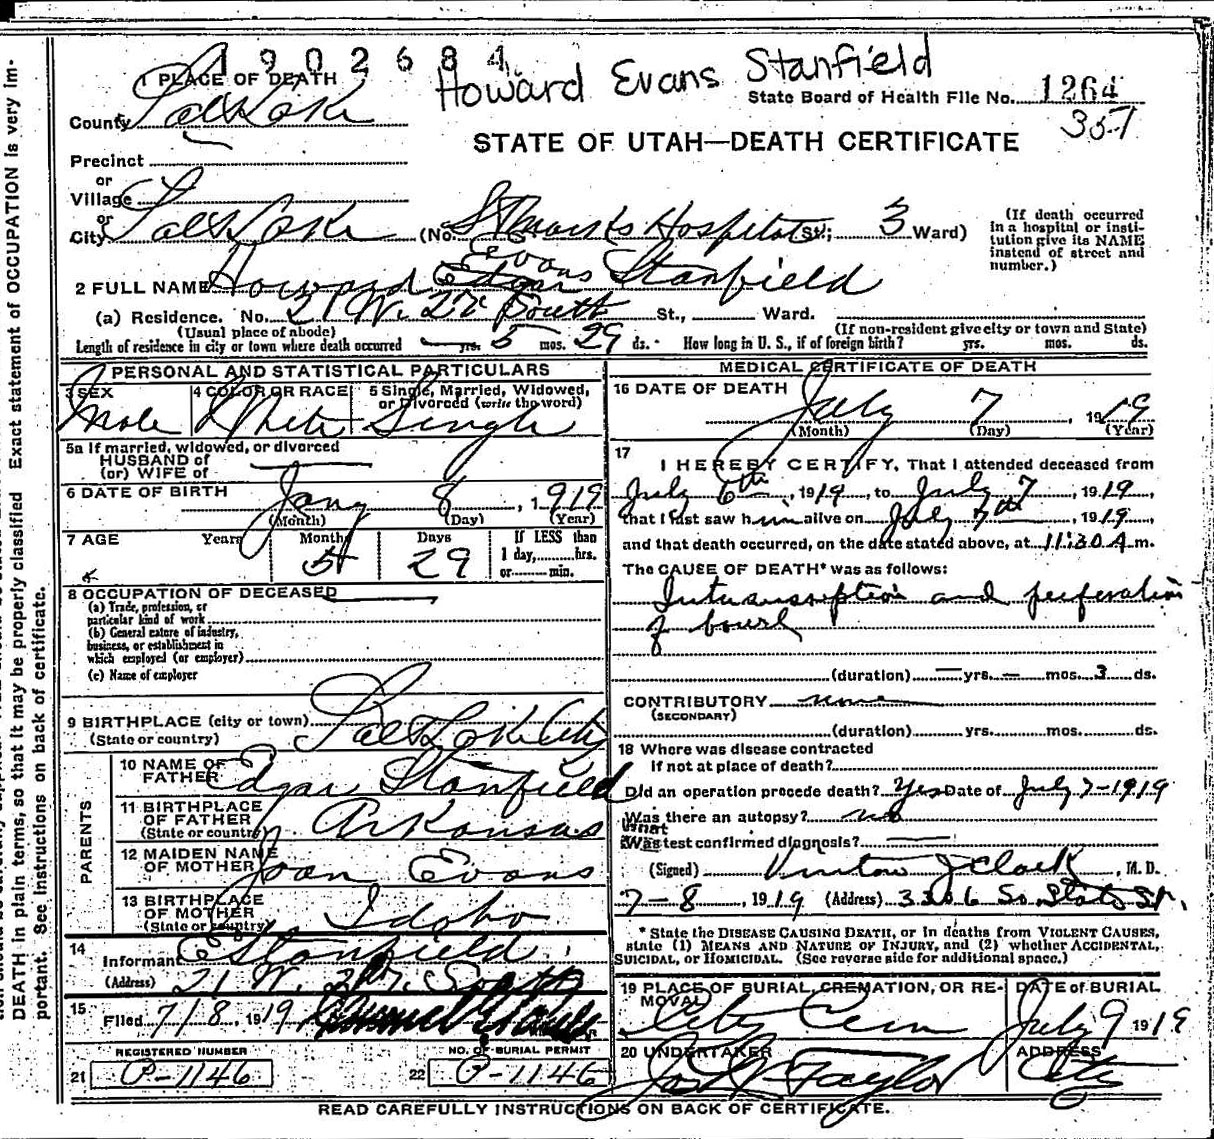 1902684
Howard Evans Stanfield
1 PLACE OF DEATH
State Board of Health File No. 1264
County Salt Lake
357
STATE OF UTAH—DEATH CERTIFICATE
Precinct
or
Village
or
City Salt Lake (No. St Marks Hospital St.; 3 Ward)
(If death occurred in a hospital or institution give its NAME instead of street and number.)
Evans
2 FULL NAME Howard Edgar Stanfield
(a) Residence. No. 21 W. 2 South St., Ward.
(Usual place of abode) (If non-resident give city or town and State)
Length of residence in city or town where death occurred — yrs. 5 mos. 29 ds. How long in U. S., if of foreign birth? yrs. mos. ds.
PERSONAL AND STATISTICAL PARTICULARS
3 SEX 4 COLOR OR RACE 5 Single, Married, Widowed, or Divorced (write the word)
Male White Single
5a If married, widowed, or divorced
HUSBAND of
(or) WIFE of
6 DATE OF BIRTH Jany 8, 1919
(Month) (Day) (Year)
7 AGE Years Months Days If LESS than
5 29 1 day, hrs.
or min.
8 OCCUPATION OF DECEASED
(a) Trade, profession, or
particular kind of work
(b) General nature of industry,
business, or establishment in
which employed (or employer)
(c) Name of employer
9 BIRTHPLACE (city or town) Salt Lake City
(State or country)
PARENTS
10 NAME OF FATHER Edgar Stanfield
11 BIRTHPLACE OF FATHER Arkansas
(State or country)
12 MAIDEN NAME OF MOTHER Joan Evans
13 BIRTHPLACE OF MOTHER Idaho
(State or country)
14
Informant E Stanfield
(Address) 21 W. 2 South
15 Filed 7/8, 1919
REGISTERED NUMBER NO. OF BURIAL PERMIT
21 P-1146 22 P-1146
MEDICAL CERTIFICATE OF DEATH
16 DATE OF DEATH July 7 1919
(Month) (Day) (Year)
17
I HEREBY CERTIFY, That I attended deceased from
July 6th, 1919, to July 7, 1919,
that I last saw him alive on July 7th, 1919,
and that death occurred, on the date stated above, at 11:30 A m.
The CAUSE OF DEATH* was as follows:
Intussusception and perforation
of bowel
(duration) — yrs. — mos. 3 ds.
CONTRIBUTORY none
(SECONDARY)
(duration) yrs. mos. ds.
18 Where was disease contracted
If not at place of death?
Did an operation precede death? Yes Date of July 7-1919
Was there an autopsy? no
What
Was test confirmed diagnosis? —
(Signed) Vinton J Clark, M. D.
7-8, 1919 (Address) 3306 So State St.
* State the DISEASE CAUSING DEATH, or in deaths from VIOLENT CAUSES,
state (1) MEANS AND NATURE OF INJURY, and (2) whether ACCIDENTAL,
SUICIDAL, or HOMICIDAL. (See reverse side for additional space.)
19 PLACE OF BURIAL, CREMATION, OR REMOVAL DATE of BURIAL
City Cem July 9 1919
20 UNDERTAKER ADDRESS
Jos Wm Taylor City
READ CAREFULLY INSTRUCTIONS ON BACK OF CERTIFICATE.
DEATH in plain terms, so that it may be properly classified. Exact statement of OCCUPATION is very im-
portant. See Instructions on back of certificate.